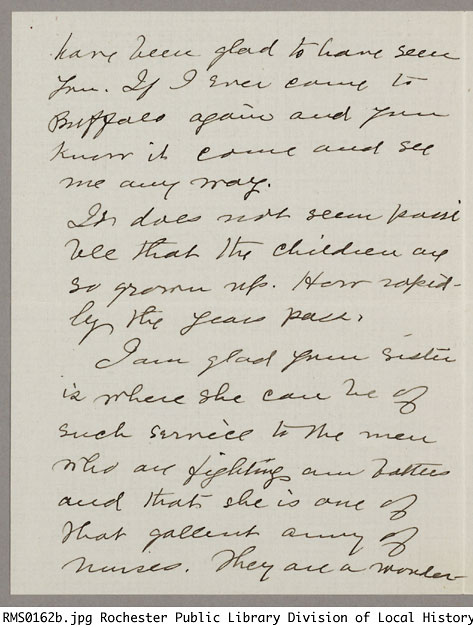 have been glad to have seen
you. If I ever come to
Buffalo again and you
know it come and see
me any way.
It does not seem possi
ble that the children are
so grown up. How rapid-
ly the years pass.
I am glad your sister
is where she can be of
such service to the men
who are fighting our battles
and that she is one of
that gallent army of
nurses. They are a wonder-
RMS0162b.jpg Rochester Public Library Division of Local History